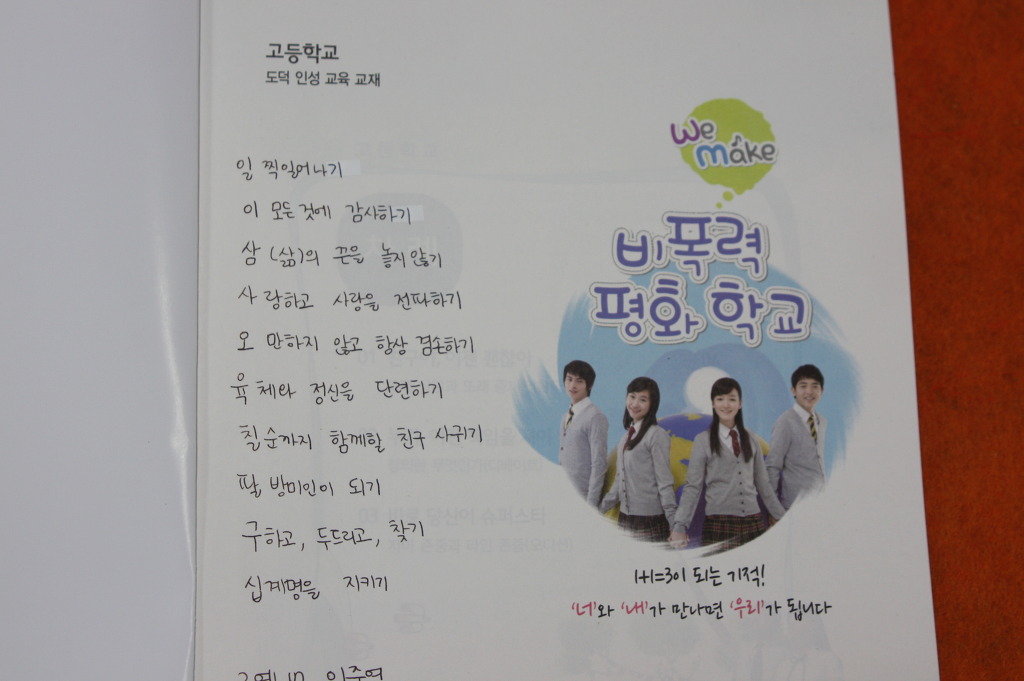 고등학교
도덕 인성 교육 교재
We
make
비폭력
평화 학교
일 찍일어나기
이 모든것에 감사하기
삼 (삶)의 끈을 놓지않기
사 랑하고 사랑을 전파하기
오 만하지 않고 항상 겸손하기
육 체와 정신을 단련하기
칠 순까지 함께할 친구 사귀기
팔 방미인이 되기
구하고, 두드리고, 찾기
십계명을 지키기
1+1=3이 되는 기적!
'너'와 '내'가 만나면 '우리'가 됩니다